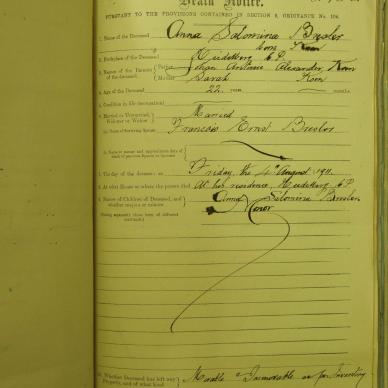 Death Notice.
PURSUANT TO THE PROVISIONS CONTAINED IN SECTION 9, ORDINANCE No. 104.
1. Name of the Deceased Anna Solomina Bresler
born
2. Birthplace of the Deceased Heidelberg C.P.
3. Names of the Parents of the Deceased Father Johan Antonie Alexander
Mother Sarah
4. Age of the Deceased 22 years months
5. Condition in life (occupation)
6. Married or Unmarried, Widower or Widow Married
(a) Name of Surviving Spouse Francois Ernst Bresler
(b) Name or names and approximate date of death of previous Spouse or Spouses
7. The day of the decease on Friday, the 4 August 1911
8. At what House or where the person died At his residence, Heidelberg C.P.
9. Names of Children of Deceased, and whether majors or minors Anna Solomina Bresler
(Stating separately those born of different marriages) minor
10. Whether Deceased has left any Property, and of what kind Movable & Immovable as per Inventory